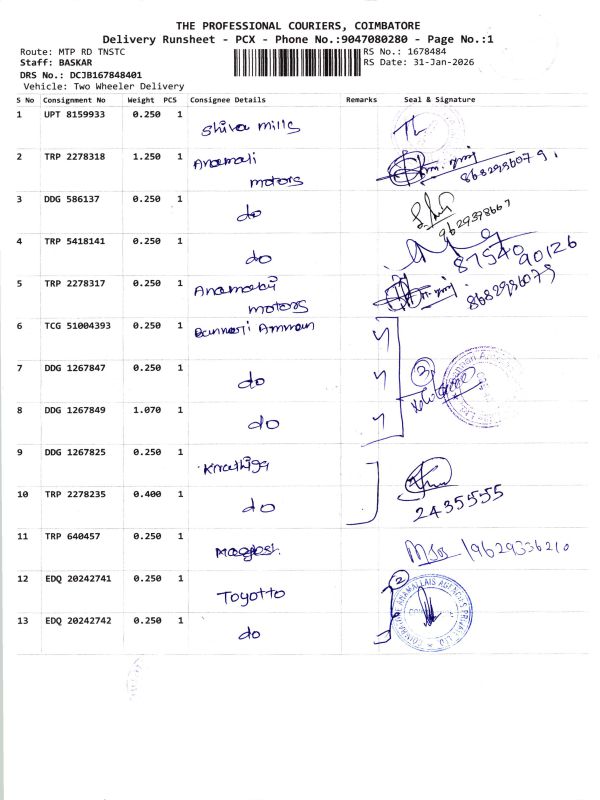 THE PROFESSIONAL COURIERS, COIMBATORE
Delivery Runsheet - PCX - Phone No.:9047080280 - Page No.:1
Route: MTP RD TNSTC RS No.: 1678484
Staff: BASKAR RS Date: 31-Jan-2026
DRS No.: DCJB167848401
Vehicle: Two Wheeler Delivery
S No Consignment No Weight PCS Consignee Details Remarks Seal & Signature
1 UPT 8159933 0.250 1
Shiva mills
2 TRP 2278318 1.250 1 Anamali
motors 8682936079
3 DDG 586137 0.250 1
do
4 TRP 5418141 0.250 1
do 8754090126
5 TRP 2278317 0.250 1
motors 8682936079
6 TCG 51004393 0.250 1 Bannari Amman
7 DDG 1267847 0.250 1
do 3
8 DDG 1267849 1.070 1
do
9 DDG 1267825 0.250 1
10 TRP 2278235 0.400 1
do 2435555
11 TRP 640457 0.250 1
9629336210
12 EDQ 20242741 0.250 1 2
Toyotto
13 EDQ 20242742 0.250 1
do